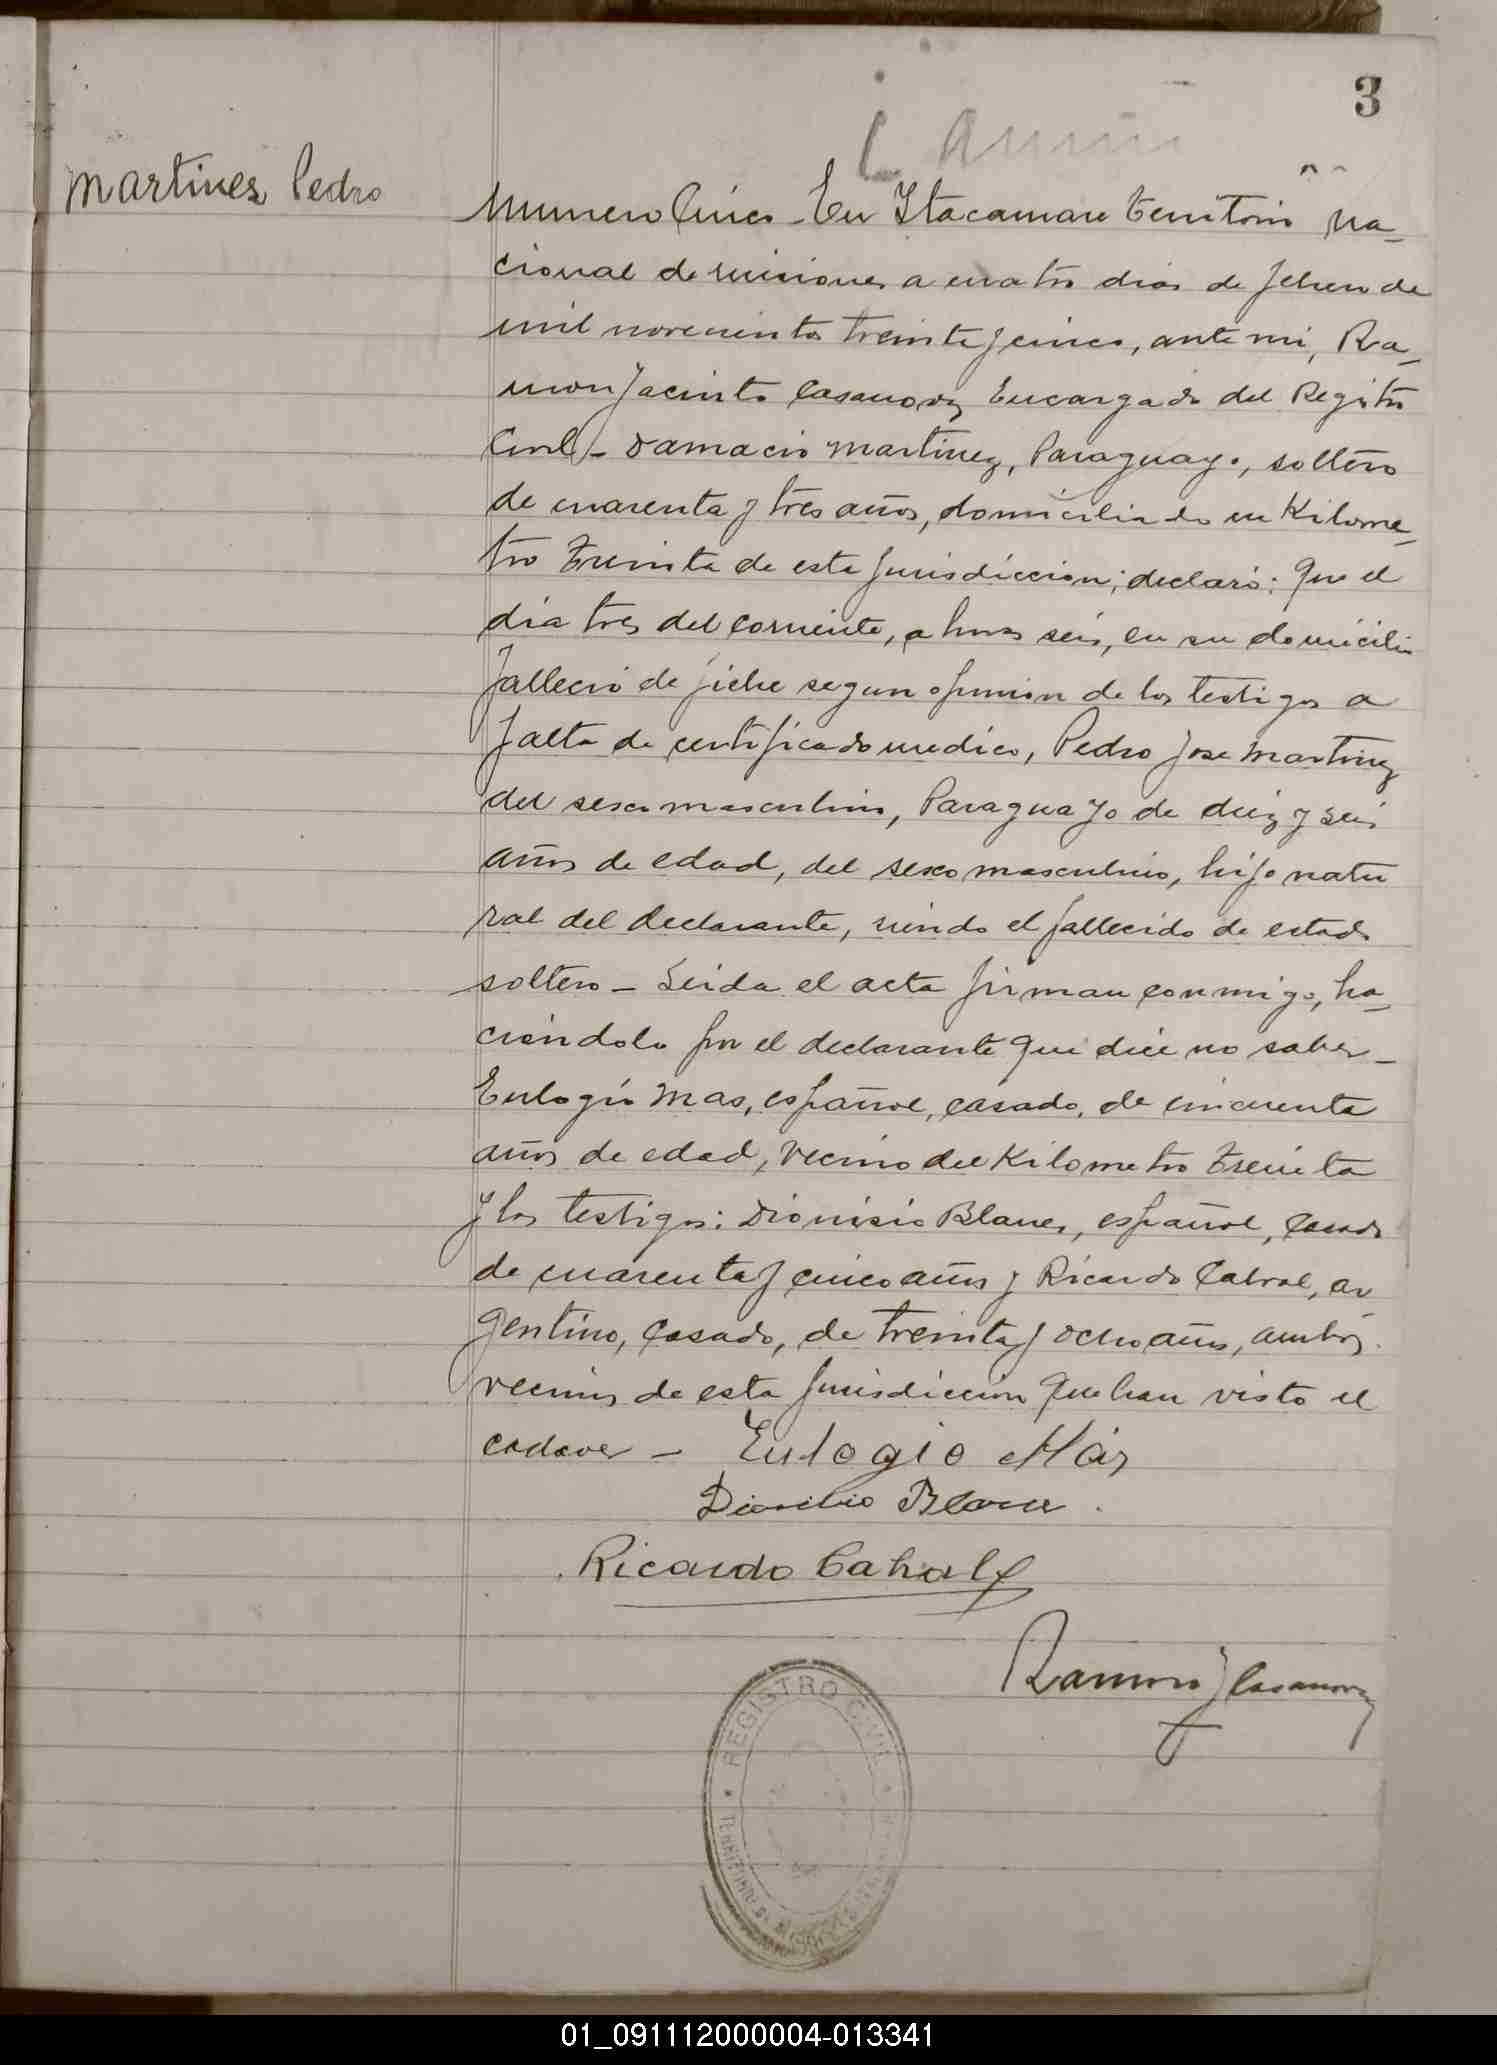 3
Martines Pedro
Numero Cinco - En Itacaruare territorio na-
cional de misiones a cuatro dias de febrero de
mil novecientos treinta y cinco, ante mi, Ra-
mon Jacinto Casanova, Encargado del Registro
Civil - Damacio Martinez, Paraguayo, soltero
de cuarenta y tres años, domiciliado en Kilome-
tro Treinta de esta jurisdiccion; declaró: Que el
día tres del corriente, a horas seis, en su domicilio
fallecio de fiebre segun opinion de los testigos a
falta de certificado medico, Pedro Jose Martinez
del sexo masculino, Paraguayo de diez y seis
años de edad, del sexo masculino, hijo natu
ral del declarante, siendo el fallecido de estado
soltero - Leida el acta firman conmigo, ha-
ciendolo por el declarante que dice no saber -
Eulogio Mas, español, casado, de cincuenta
años de edad, vecino del Kilometro Treinta
y los testigos: Dionisio Blanes, español, casado
de cuarenta y cinco años y Ricardo Cabral, ar-
gentino, casado, de treinta y ocho años, ambos
vecinos de esta jurisdiccion que han visto el
cadaver - Eulogio Más
Dionisio Blanes
Ricardo Cabral
Ramon J Casanova
REGISTRO CIVIL
01_091112000004-013341